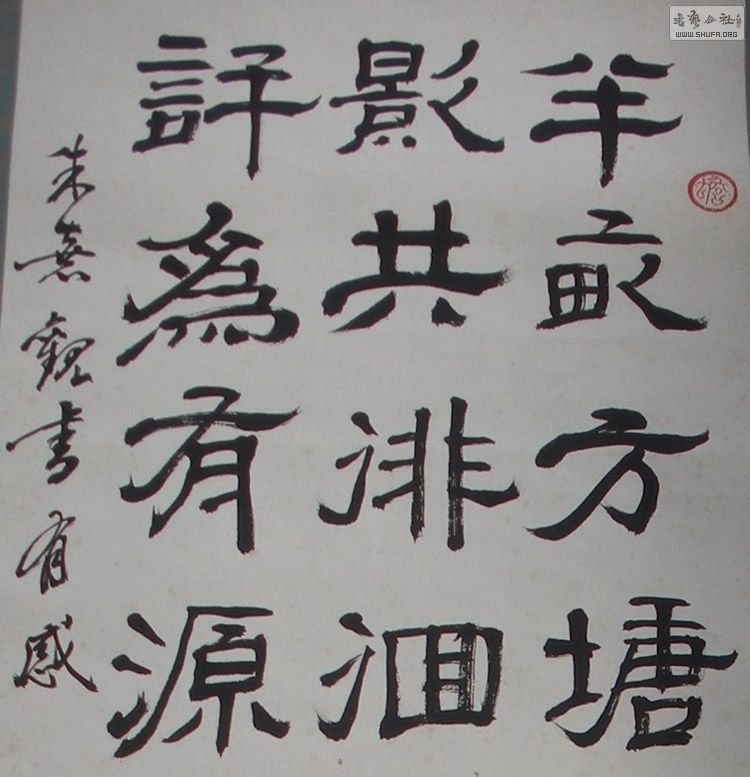 半畝方塘
影共徘徊
許為有源
朱熹觀書有感
書藝公社
WWW.SHUFA.ORG